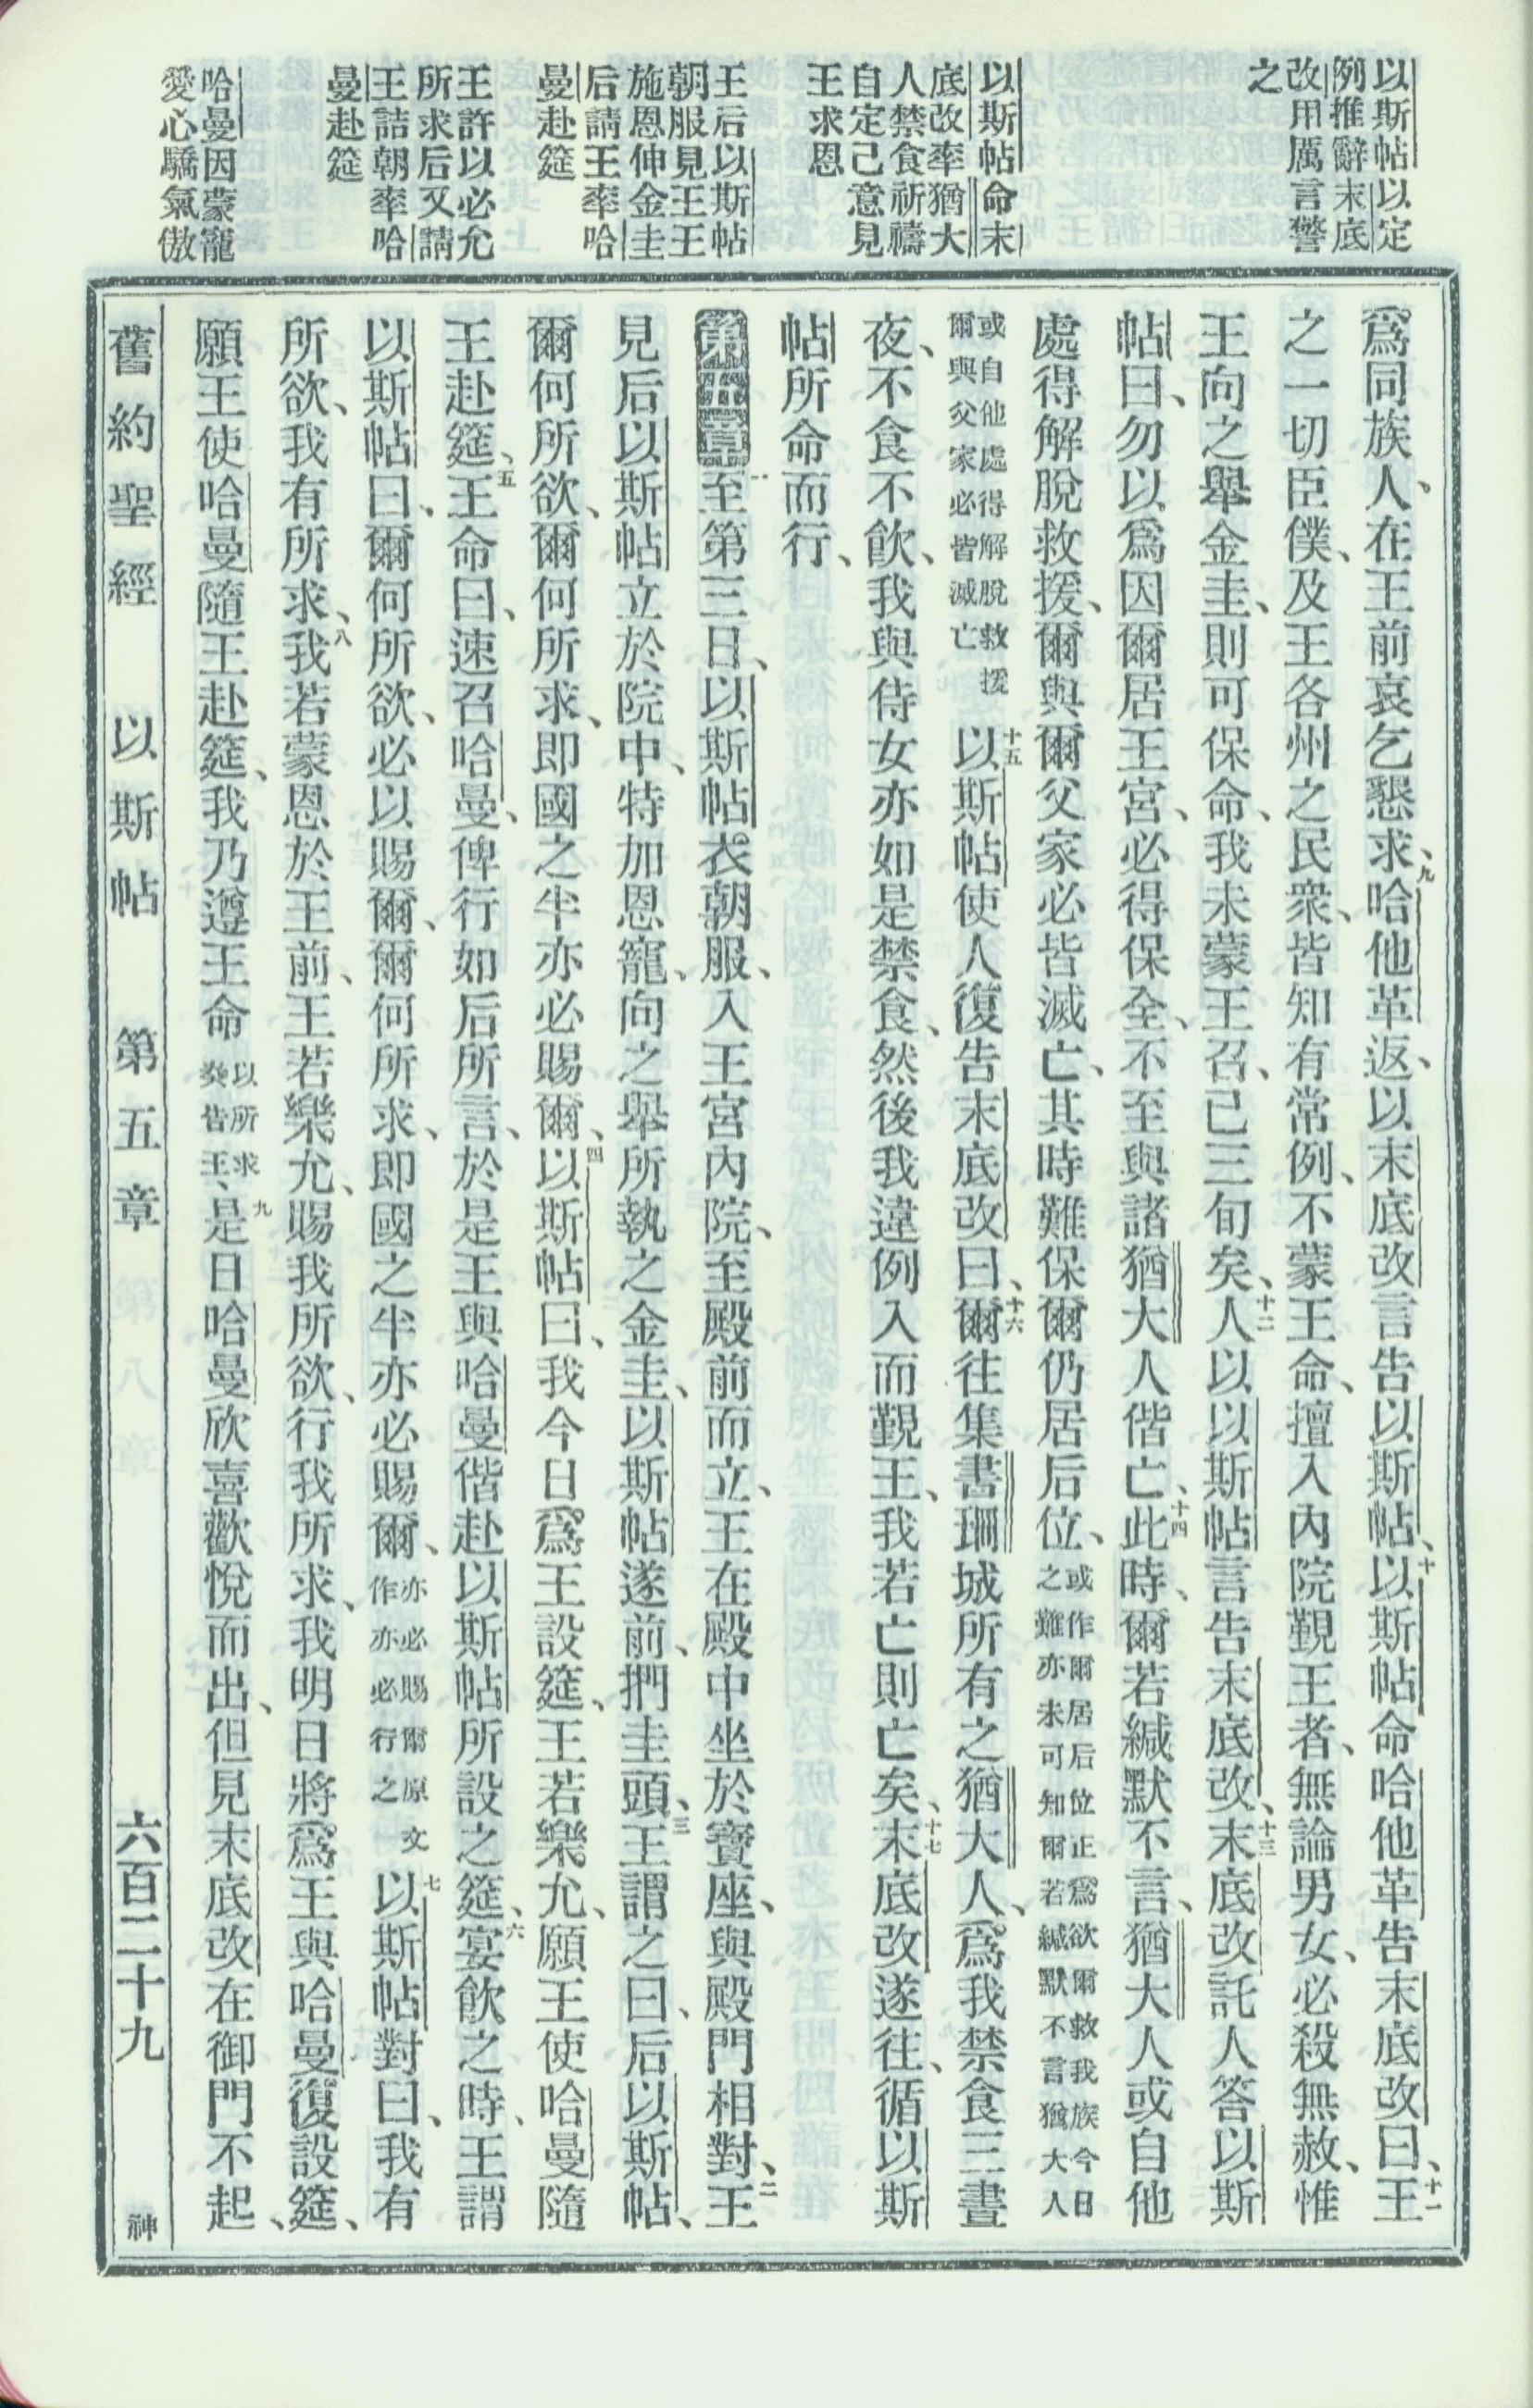 以斯帖以定
例推辭末底
改用厲言警
之
以斯帖命末
底改率猶大
人禁食祈禱
自定己意見
王求恩
王后以斯帖
朝服見王王
施恩伸金圭
后請王率哈
曼赴筵
王許以必允
所求后又請
王詰朝率哈
曼赴筵
哈曼因蒙寵
愛心驕氣傲
爲同族人、在王前哀乞懇求、九哈他革返、以末底改言告以斯帖、十以斯帖命哈他革告末底改曰、十一王
之一切臣僕、及王各州之民衆、皆知有常例、不蒙王命、擅入內院覲王者、無論男女、必殺無赦、惟
王向之舉金圭、則可保命、我未蒙王召、已三旬矣、十二人以以斯帖言告末底改、十三末底改託人答以斯
帖曰、勿以爲因爾居王宮、必得保全、不至與諸猶大人偕亡、十四此時、爾若緘默不言、猶大人或自他
處得解脫救援、爾與爾父家必皆滅亡、其時難保爾仍居后位、或作爾居后位正爲欲爾救我族今日之難亦未可知爾若緘默不言猶大人
或自他處得解脫救援爾與父家必皆滅亡十五以斯帖使人復告末底改曰、十六爾往集書珊城所有之猶大人、爲我禁食三晝
夜、不食不飮、我與侍女亦如是禁食、然後我違例入而覲王、我若亡則亡矣、十七末底改遂往、循以斯
帖所命而行、
第五章一至第三日、以斯帖衣朝服、入王宮內院、至殿前而立、王在殿中坐於寶座、與殿門相對、二王
見后以斯帖立於院中、特加恩寵、向之舉所執之金圭、以斯帖遂前、捫圭頭、三王謂之曰、后以斯帖、
爾何所欲、爾何所求、即國之半亦必賜爾、四以斯帖曰、我今日爲王設筵、王若樂允、願王使哈曼隨
王赴筵、五王命曰、速召哈曼、俾行如后所言、於是王與哈曼偕赴以斯帖所設之筵、六宴飮之時、王謂
以斯帖曰、爾何所欲、必以賜爾、爾何所求、即國之半亦必賜爾、亦必賜爾原文作亦必行之七以斯帖對曰、我有
所欲、我有所求、八我若蒙恩於王前、王若樂允、賜我所欲、行我所求、我明日將爲王與哈曼復設筵、
願王使哈曼隨王赴筵、我乃遵王命以所求癸吿王、九是日哈曼欣喜歡悅而出、但見末底改在御門不起、
舊約聖經 以斯帖 第五章 六百二十九 神